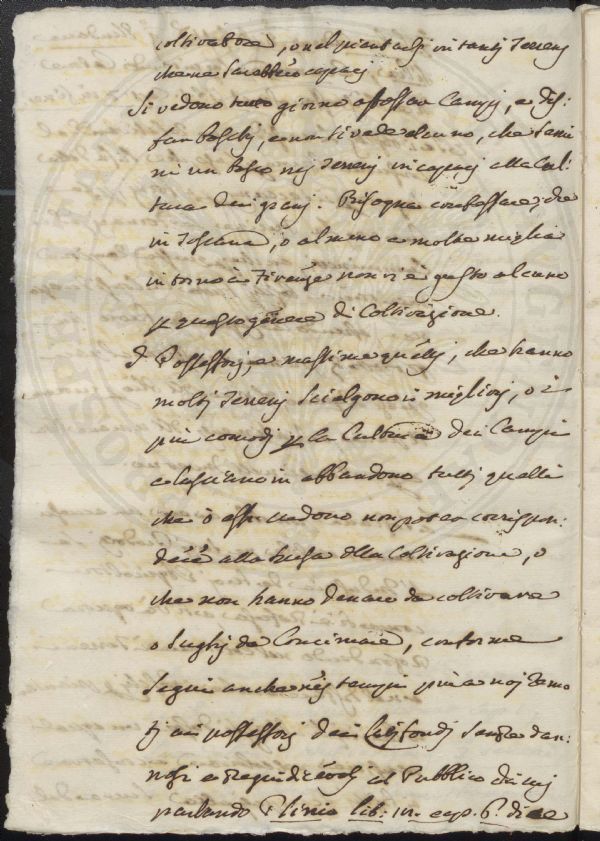 coltivatore, o nel piantarli in tanti Terreni
che ne sarebbero capaci
Si vedono tutto giorno affossar Campi, e dis:
far Boschi, e non si vede alcuno, che semi
ni un Bosco nei Terreni incapaci alla Cul:
tura dei grani. Bisogna confessare, che
in Toscana, o almeno a molte miglia
intorno a Firenze non vi è gusto alcuno
p questo genere di Coltivazione.
I Possessori, e massime quelli, che hanno
molti Terreni scielgono i migliori, o i
più comodi p la Cultura dei Campi
e lasciano in abbandono tutti quelli
che o essi vedono non poter corrispon:
dere alla spesa della Coltivazione, o
che non hanno denaro da coltivare
o sughi da Concimare, conforme
seguì anche nei tempi più a noi remo
ti ai possessori dei Latifondi tanto dan:
nosi e pregiudicevoli al Pubblico dei quali
parlando Plinio lib: 18. cap. 6. dice